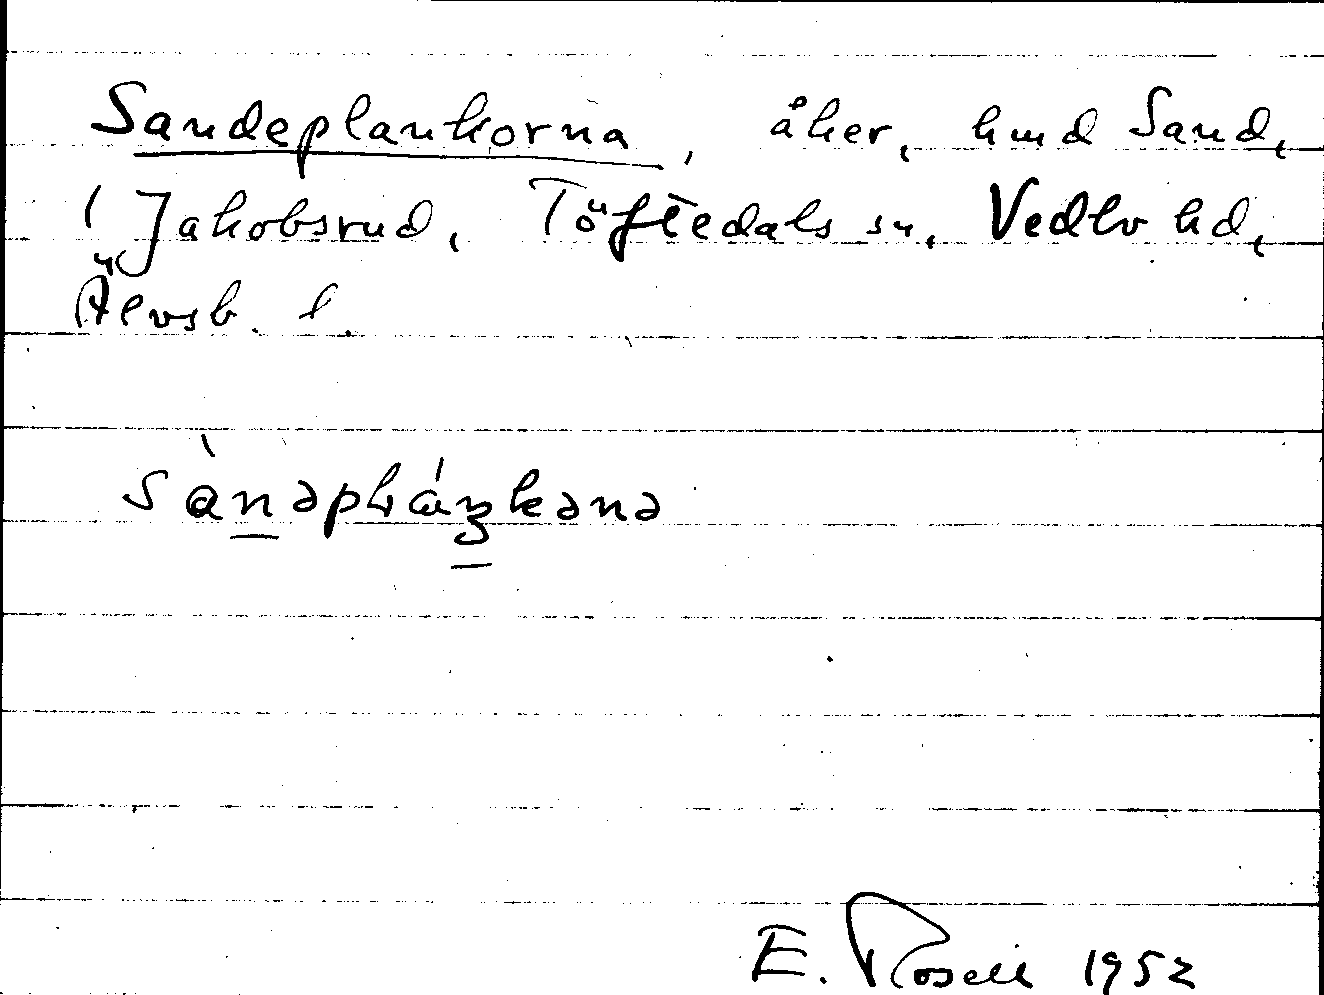 Sandeplankorna, åker, hmd Sand,
i Jakobsrud, Töftedals sn, Vedbo hd,
Älvsb. l.
sànəpɫáŋkənə
E. Rosell 1952